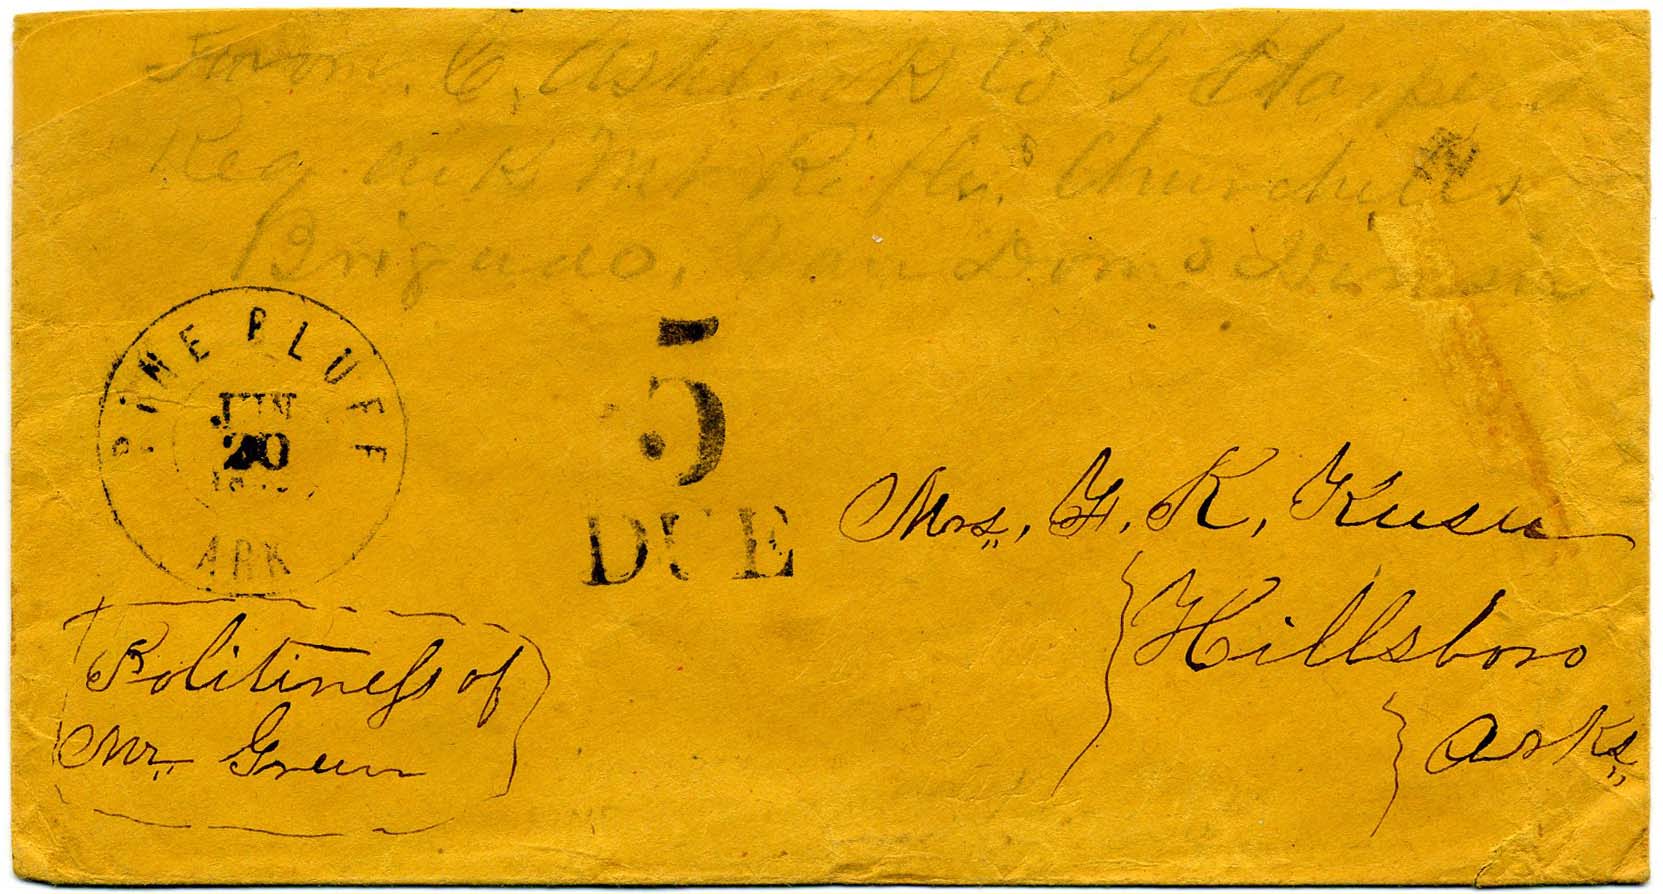 From. C. Ashbrook Co G Harper's
Reg. Ark Mt Rifles Churchill's
Brigade, Van Dorn's Division
PINE BLUFF
JUN
20
ARK
5
DUE
Mrs. G. K.
Hillsboro
Arks.
Politiness of
Mr. Green